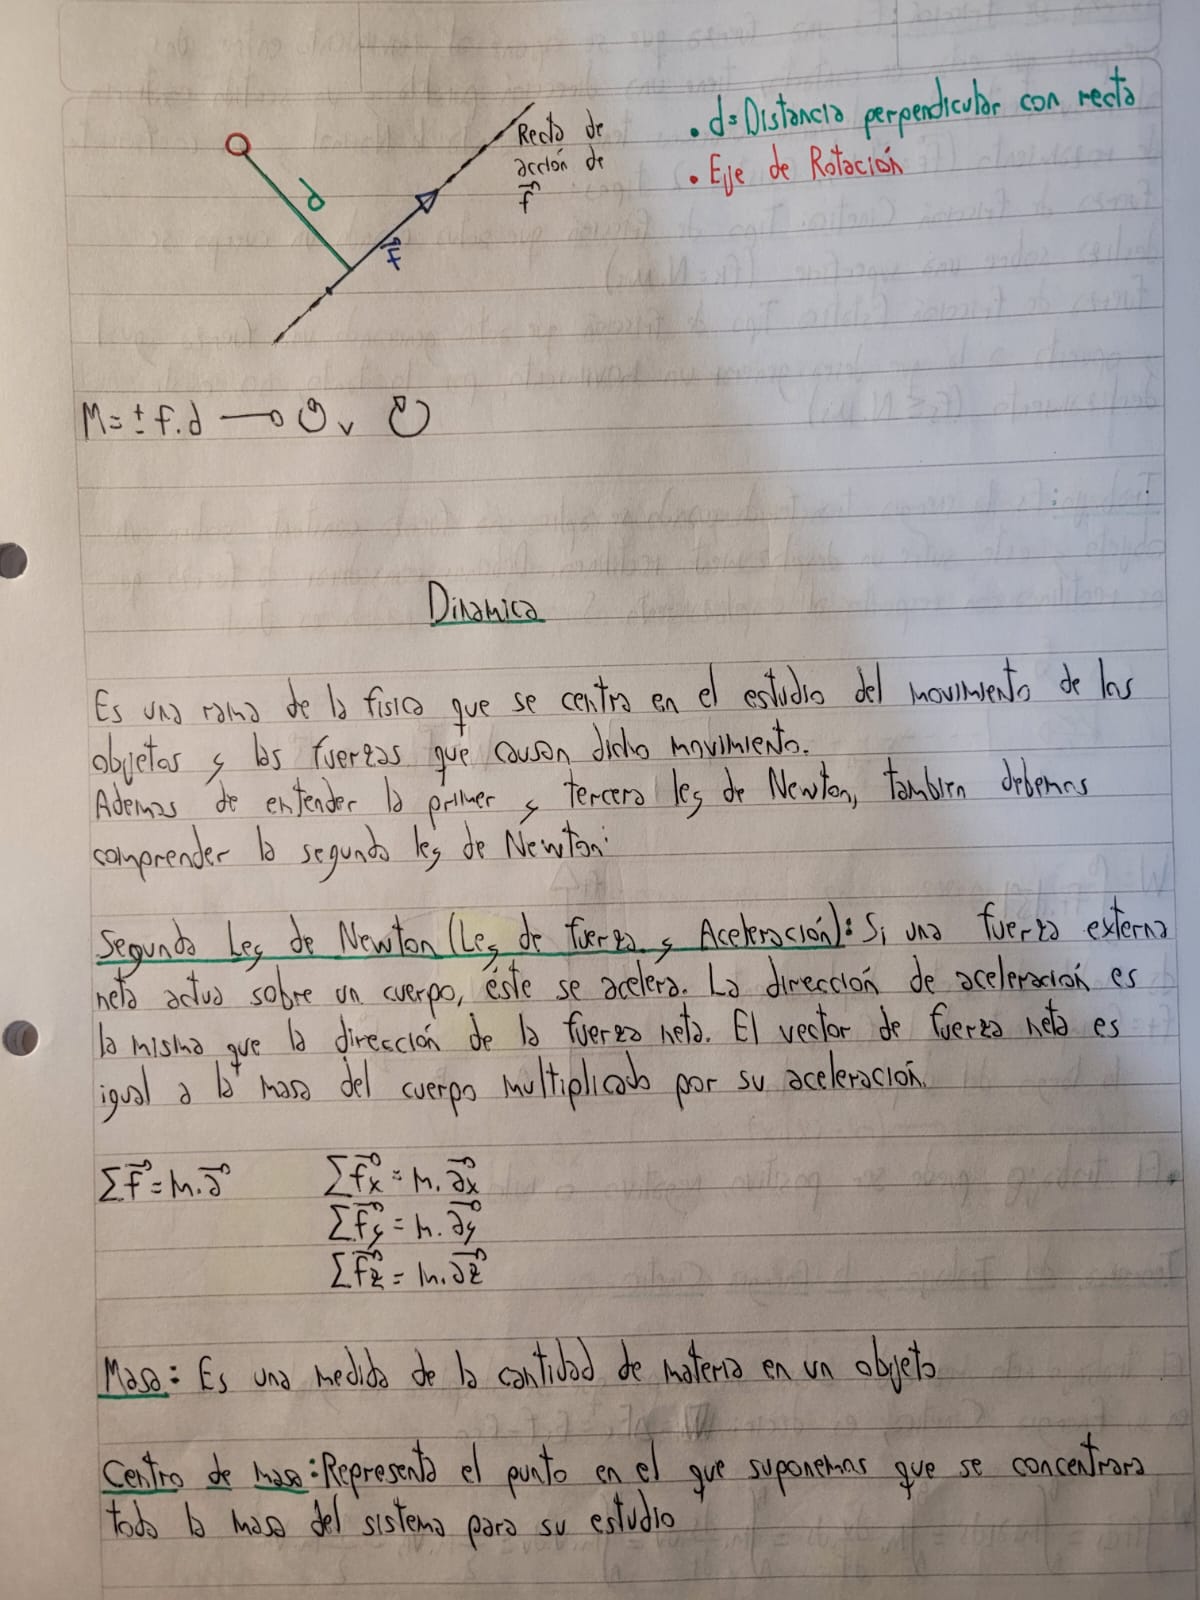 Recta de
acción de
F⃗
• d=Distancia perpendicular con recta
• Eje de Rotación
d
F⃗
M= ± F.d → ↺ v ↻
Dinamica
Es una rama de la fisica que se centra en el estudio del movimiento de los
objetos y las fuerzas que causan dicho movimiento.
Ademas de entender la primer y tercera ley de Newton, tambien debemos
comprender la segunda ley de Newton:
Segunda Ley de Newton (Ley de fuerza y Aceleración): Si una fuerza externa
neta actua sobre un cuerpo, éste se acelera. La dirección de aceleración es
la misma que la dirección de la fuerza neta. El vector de fuerza neta es
igual a la masa del cuerpo multiplicado por su aceleración.
ΣF⃗ = m.a⃗
ΣF⃗x = m.a⃗x
ΣF⃗y = m.a⃗y
ΣF⃗z = m.a⃗z
Masa: Es una medida de la cantidad de materia en un objeto
Centro de masa: Representa el punto en el que suponemos que se concentrara
toda la masa del sistema para su estudio